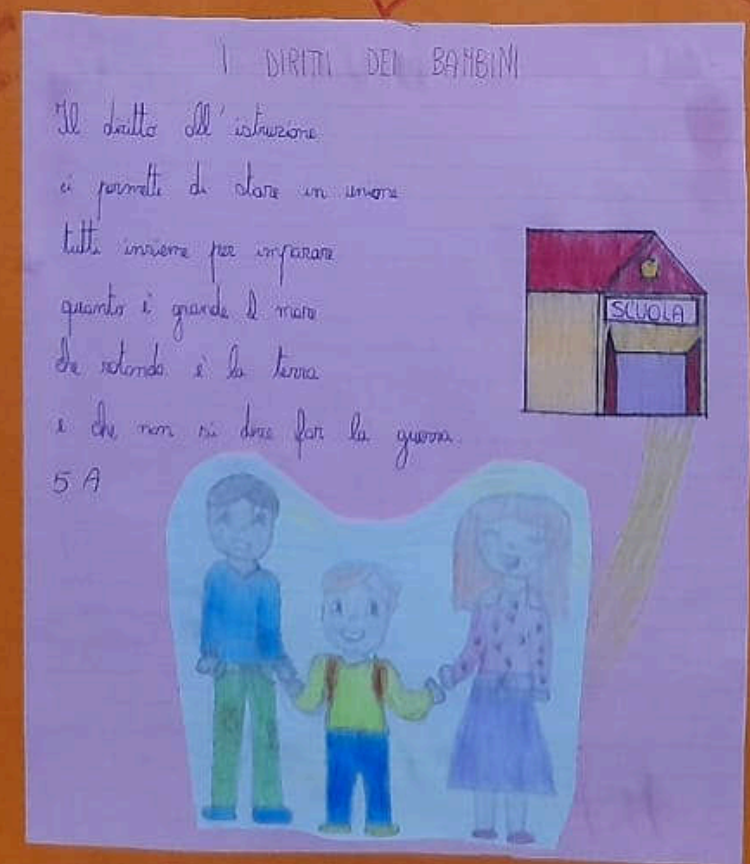 I DIRITTI DEI BAMBINI
Il diritto all'istruzione
ci permette di stare in unione
tutti insieme per imparare
quanto è grande il mare
che rotonda è la terra
e che non si deve far la guerra.
5 A
SCUOLA